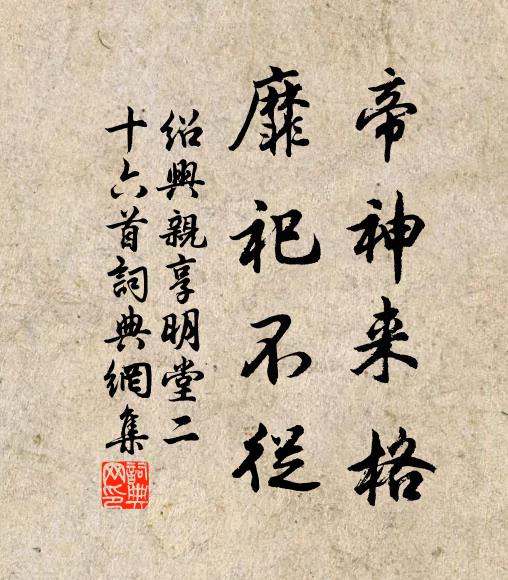 帝神来格
靡祀不従
紹興親享明堂二
十六首詞典網集
詞典网印